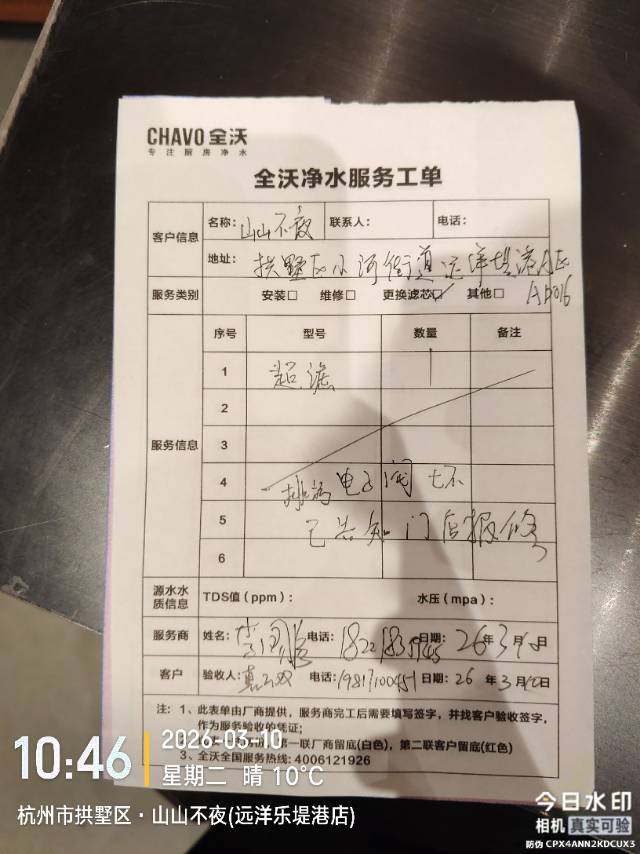 CHAVO 全沃
专注厨房净水
全沃净水服务工单
客户信息 名称: 山山不夜 联系人: 电话:
地址: 拱墅区小河街道远洋堤港A区
A1016
服务类别 安装□ 维修□ 更换滤芯☑ 其他□
服务信息 序号 型号 数量 备注
1 超滤 1
2
3
4 排污电子阀坏
5 已告知门店报修
6
源水水质信息 TDS值(ppm): 水压(mpa):
服务商 姓名: 电话: 日期: 26年3月10日
客户 验收人: 电话: 19817100451 日期: 26年3月10日
注: 1、此表单由厂商提供,服务商完工后需要填写签字,并找客户验收签字,
作为服务验收的凭证;
第一联厂商留底(白色),第二联客户留底(红色)
3、全沃全国服务热线: 4006121926
10:46
2026-03-10
星期二 晴 10℃
杭州市拱墅区·山山不夜(远洋乐堤港店)
今日水印
相机 真实可验
防伪 CPX4ANN2KDCUX3